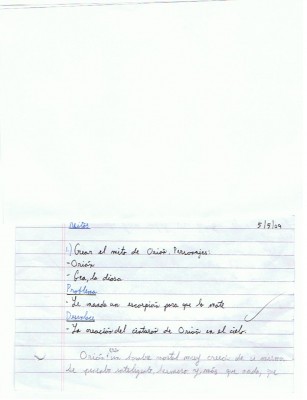 Mitos 5/5/09
1) Crear el mito de Orión. Personajes:
- Orión
- Gea, la diosa
Problema
- Le manda un escorpión para que lo mate
Desenlace
- La creación del cinturón de Orión en el cielo.
Orión era un hombre mortal muy creído de si mismo
de que era inteligente, hermoso y más que nada, que